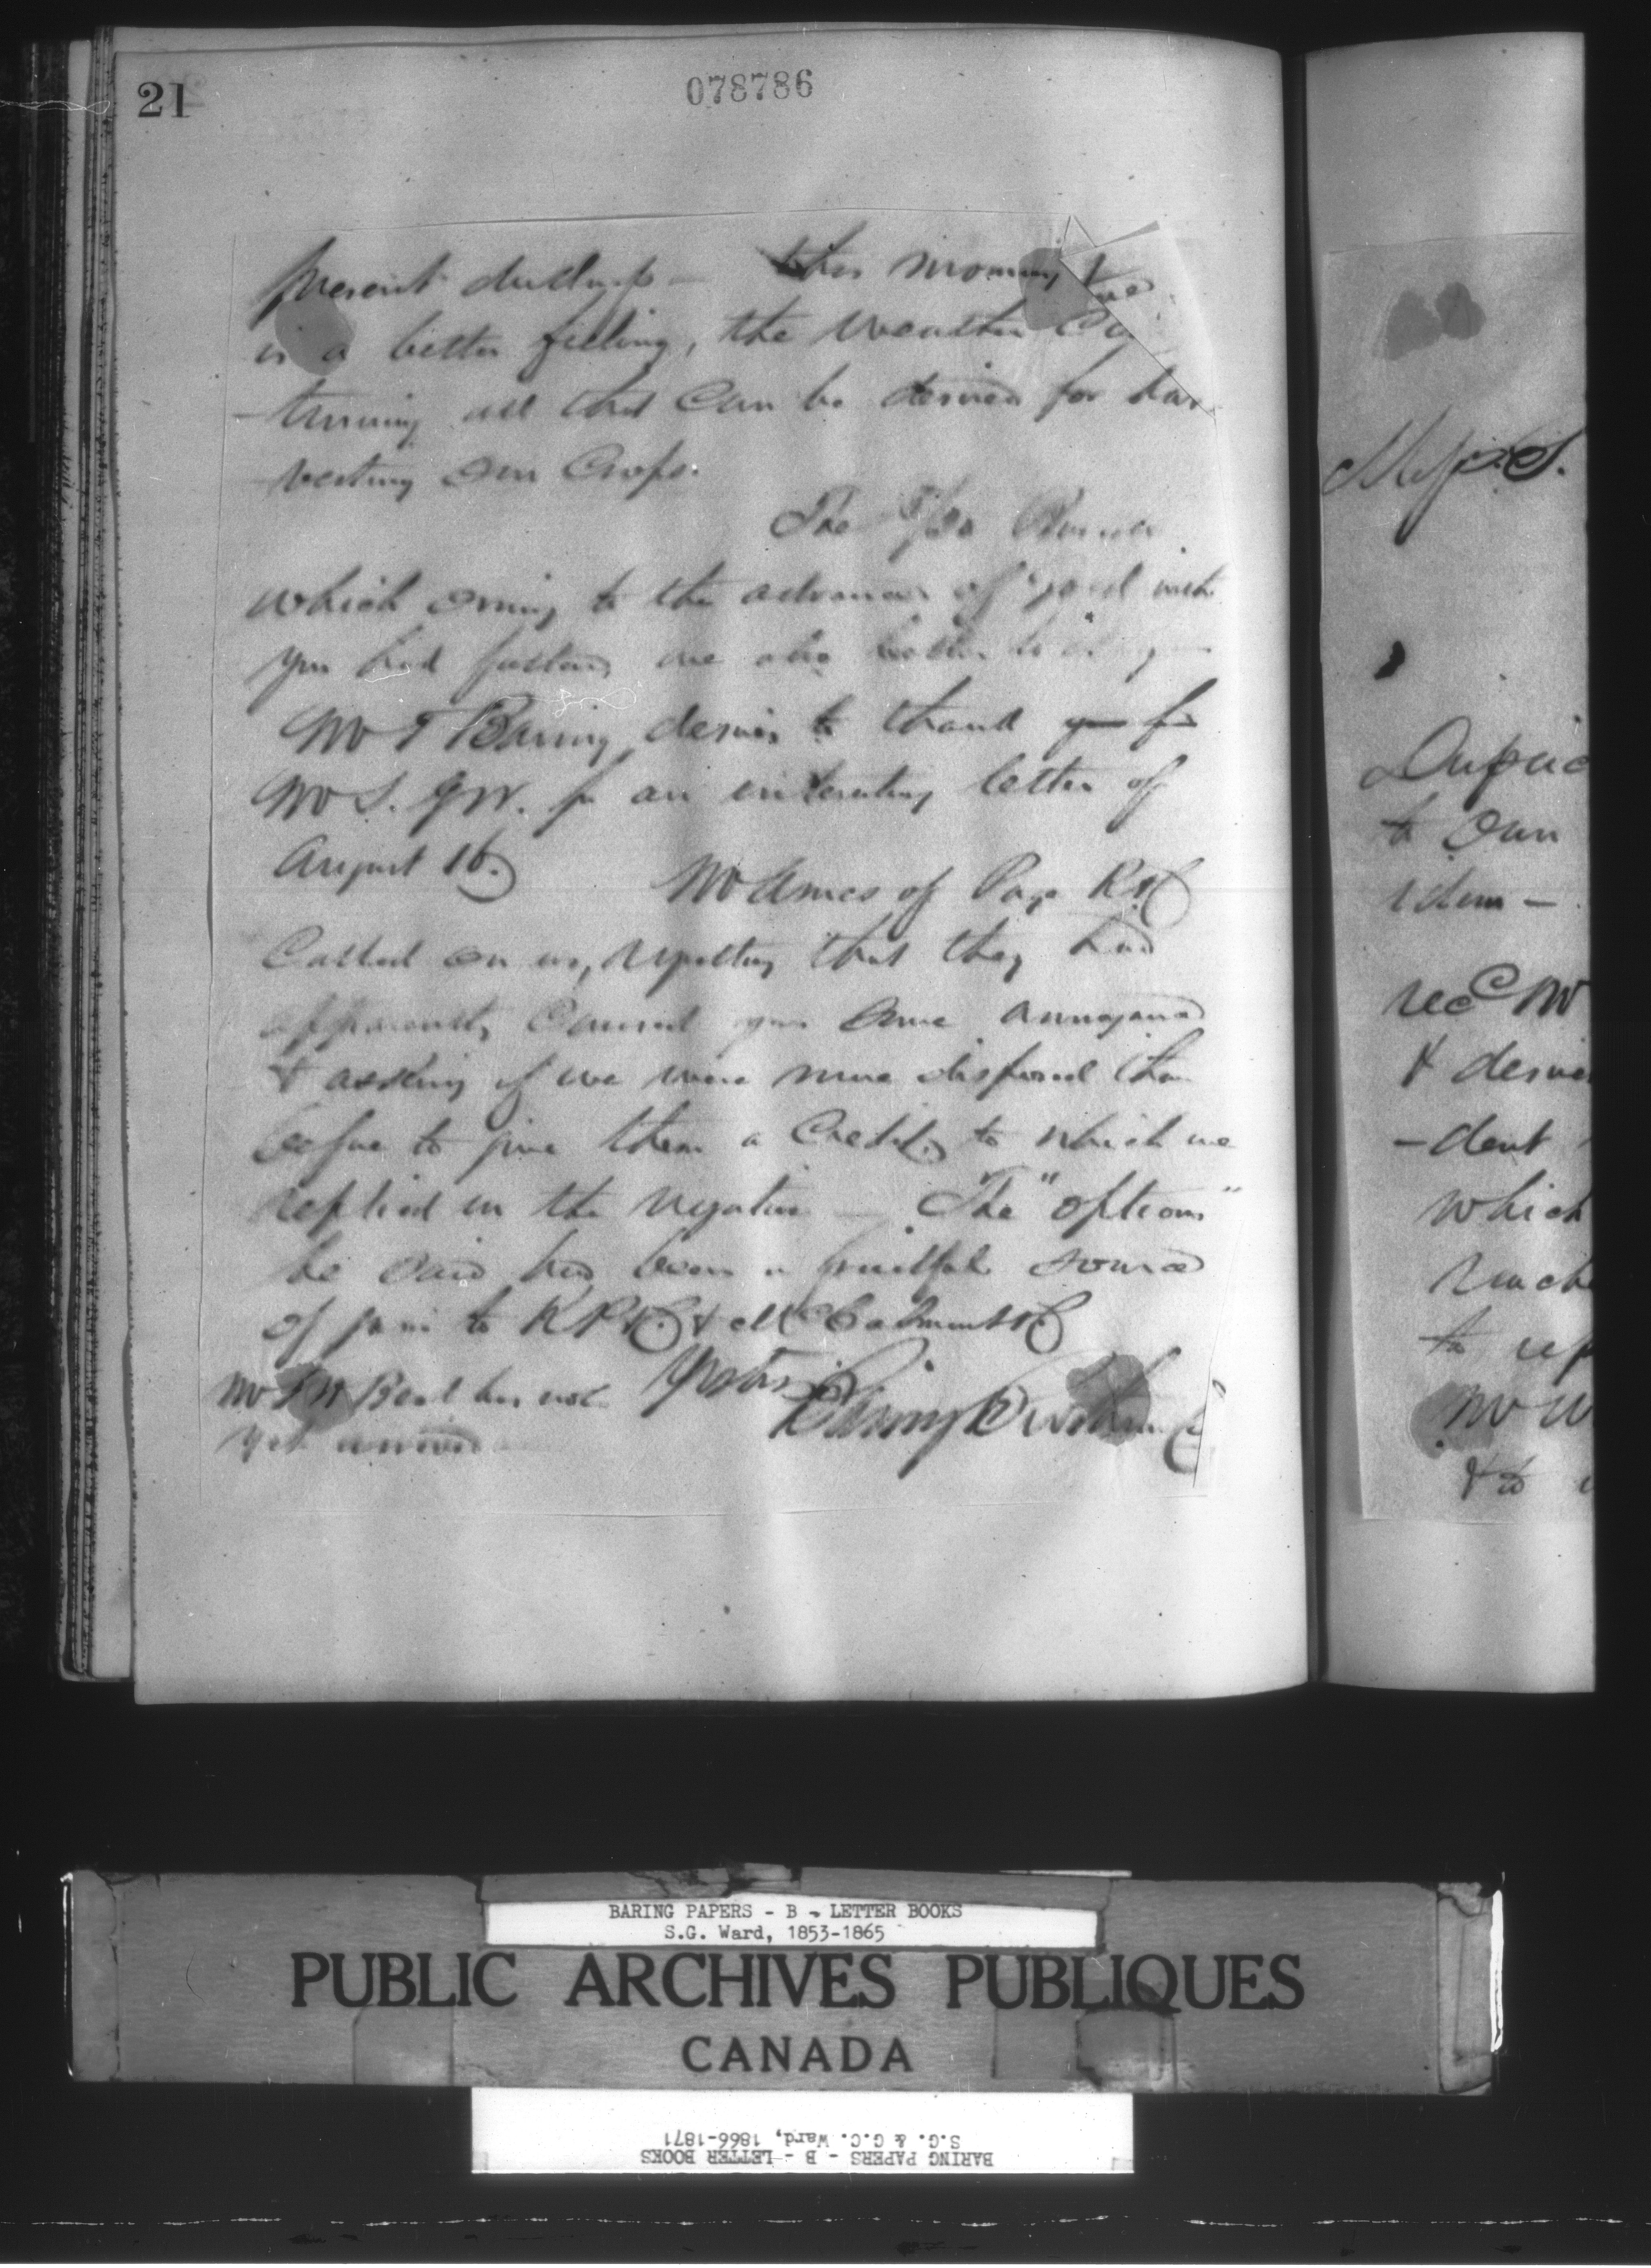 21
078786
present dullness — this morning there
is a better feeling, the Weather Con
-tinuing all that Can be desired for har
-vesting our Crops.
The 5/20 Bonds
which owing to the advance of gold with
you had fallen, are also better
Mr T Baring desires to thank you for
Mr S. G W. for an interesting letter of
August 16.
Mr Ames of Page R &C
Called on us, regretting that they had
apparently Caused you some annoyance
& asking if we were more disposed than
before to give them a Credit, to which we
replied in the negative — The "options"
he said had been a fruitful source
of pain to R P &Co & McCalmont &C
Mr Beal has not
yet arrived
Yrs
Baring Brothers & C
Dupli
to Our
idem —
recd Mr
& desire
-dent
which
to
Mr W
& to
BARING PAPERS - B - LETTER BOOKS
S.G. Ward, 1853-1865
PUBLIC ARCHIVES PUBLIQUES
CANADA
BARING PAPERS - B - LETTER BOOKS
S.G. & G.C. Ward, 1866-1871